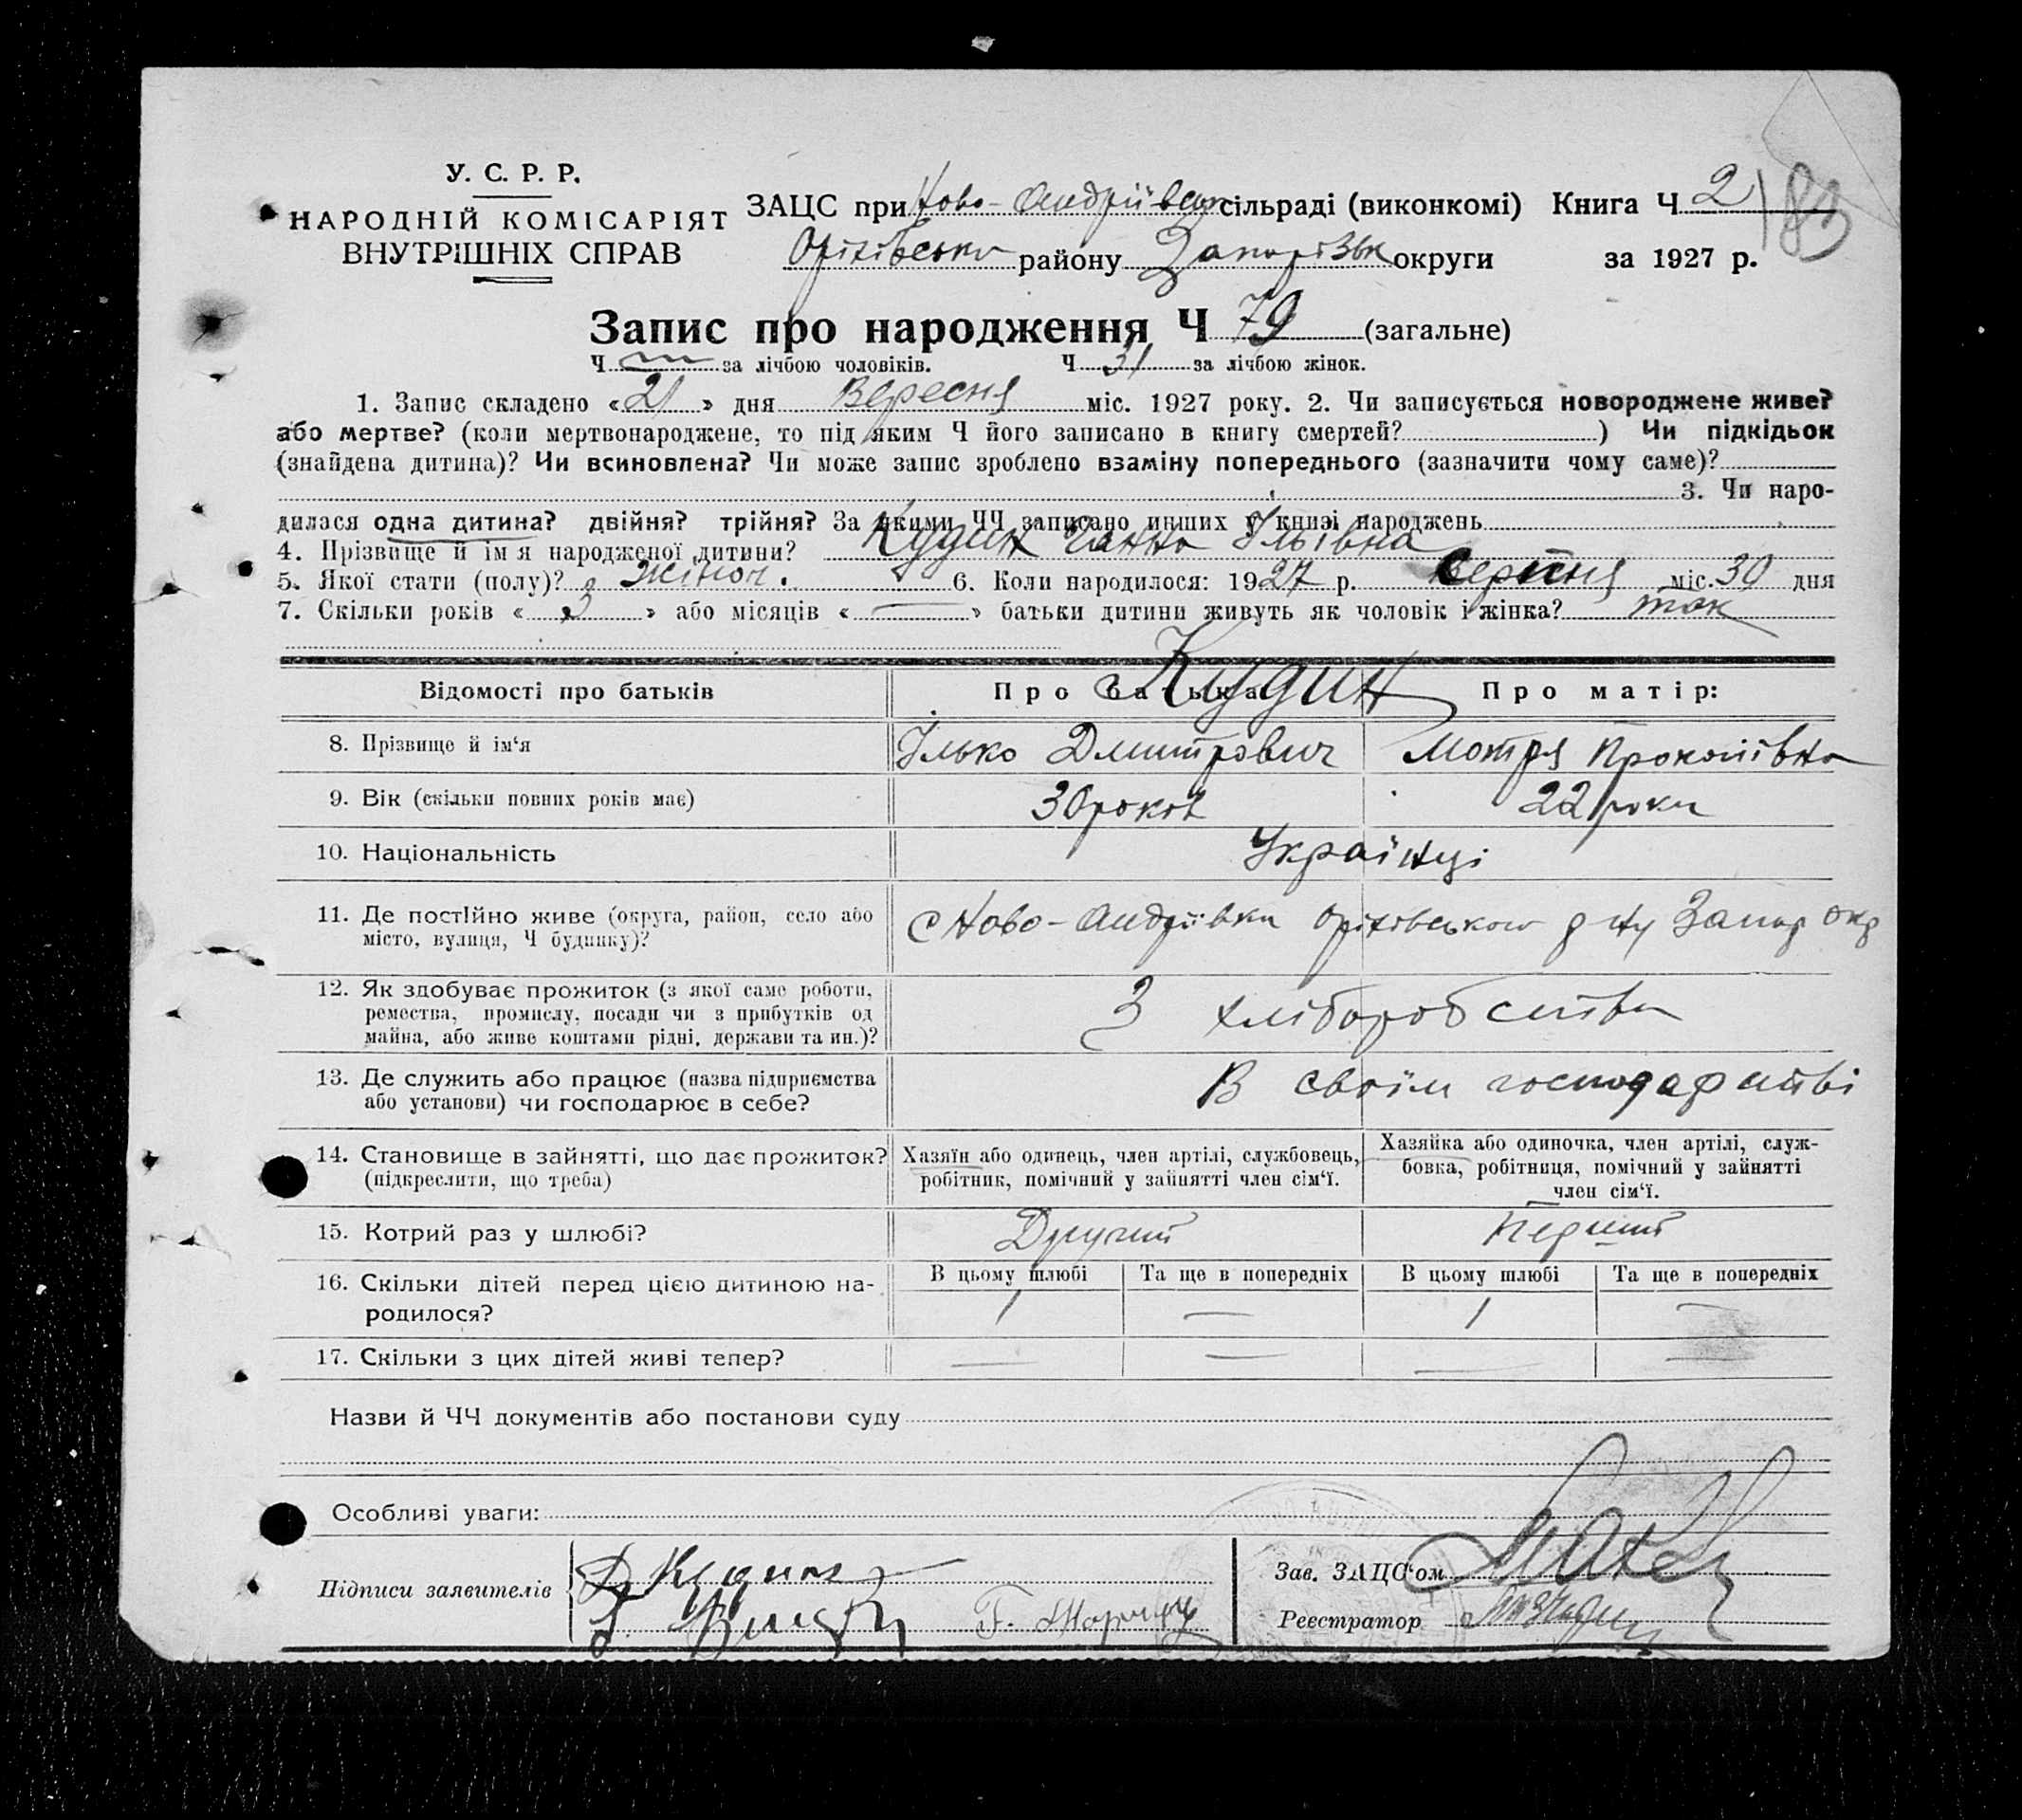 У. С. Р. Р.
НАРОДНІЙ КОМІСАРІЯТ
ВНУТРІШНІХ СПРАВ
ЗАЦС при Ново-Андріївськ сільраді (виконкомі) Книга Ч 2
183
Оріхівськ району Запорізьк округи за 1927 р.
Запис про народження Ч 79 (загальне)
Ч — за лічбою чоловіків. Ч 31 за лічбою жінок.
1. Запис складено «21» дня Вересня міс. 1927 року. 2. Чи записується новороджене живе?
або мертве? (коли мертвонароджене, то під яким Ч його записано в книгу смертей? ) Чи підкідьок
(знайдена дитина)? Чи всиновлена? Чи може запис зроблено взаміну попереднього (зазначити чому саме)?
3. Чи наро-
дилася одна дитина? двійня? трійня? За якими ЧЧ записано инших у книзі народжень
4. Прізвище й ім'я народженої дитини? Кудин Ганна Ільївна
5. Якої стати (полу)? жіноч. 6. Коли народилося: 1927 р. Серпня міс. 30 дня
7. Скільки років «3» або місяців «—» батьки дитини живуть як чоловік і жінка? так
Відомості про батьків Про батька Про матір:
Кудин
8. Прізвище й ім'я Ілько Дмитрович Мотря Прокопівна
9. Вік (скільки повних років має) 30 років 22 роки
10. Національність Українці
11. Де постійно живе (округа, район, село або
місто, вулиця, Ч будинку)?
с Ново-Андріївка Оріхівського р ну Запор окр
12. Як здобуває прожиток (з якої саме роботи,
ремества, промислу, посади чи з прибутків од
майна, або живе коштами рідні, держави та ин.)?
З хліборобства
13. Де служить або працює (назва підприємства
або установи) чи господарює в себе?
В своїм господарстві
14. Становище в зайнятті, що дає прожиток?
(підкреслити, що треба)
Хазяїн або одинець, член артілі, службовець,
робітник, помічний у зайнятті член сім'ї.
Хазяйка або одиночка, член артілі, служ-
бовка, робітниця, помічний у зайнятті
член сім'ї.
15. Котрий раз у шлюбі? Другий Перший
16. Скільки дітей перед цією дитиною на-
родилося?
В цьому шлюбі Та ще в попередніх В цьому шлюбі Та ще в попередніх
1 — 1 —
17. Скільки з цих дітей живі тепер? — — — —
Назви й ЧЧ документів або постанови суду
Особливі уваги:
Підписи заявителів
Кудин
Зав. ЗАЦС'ом
Реєстратор